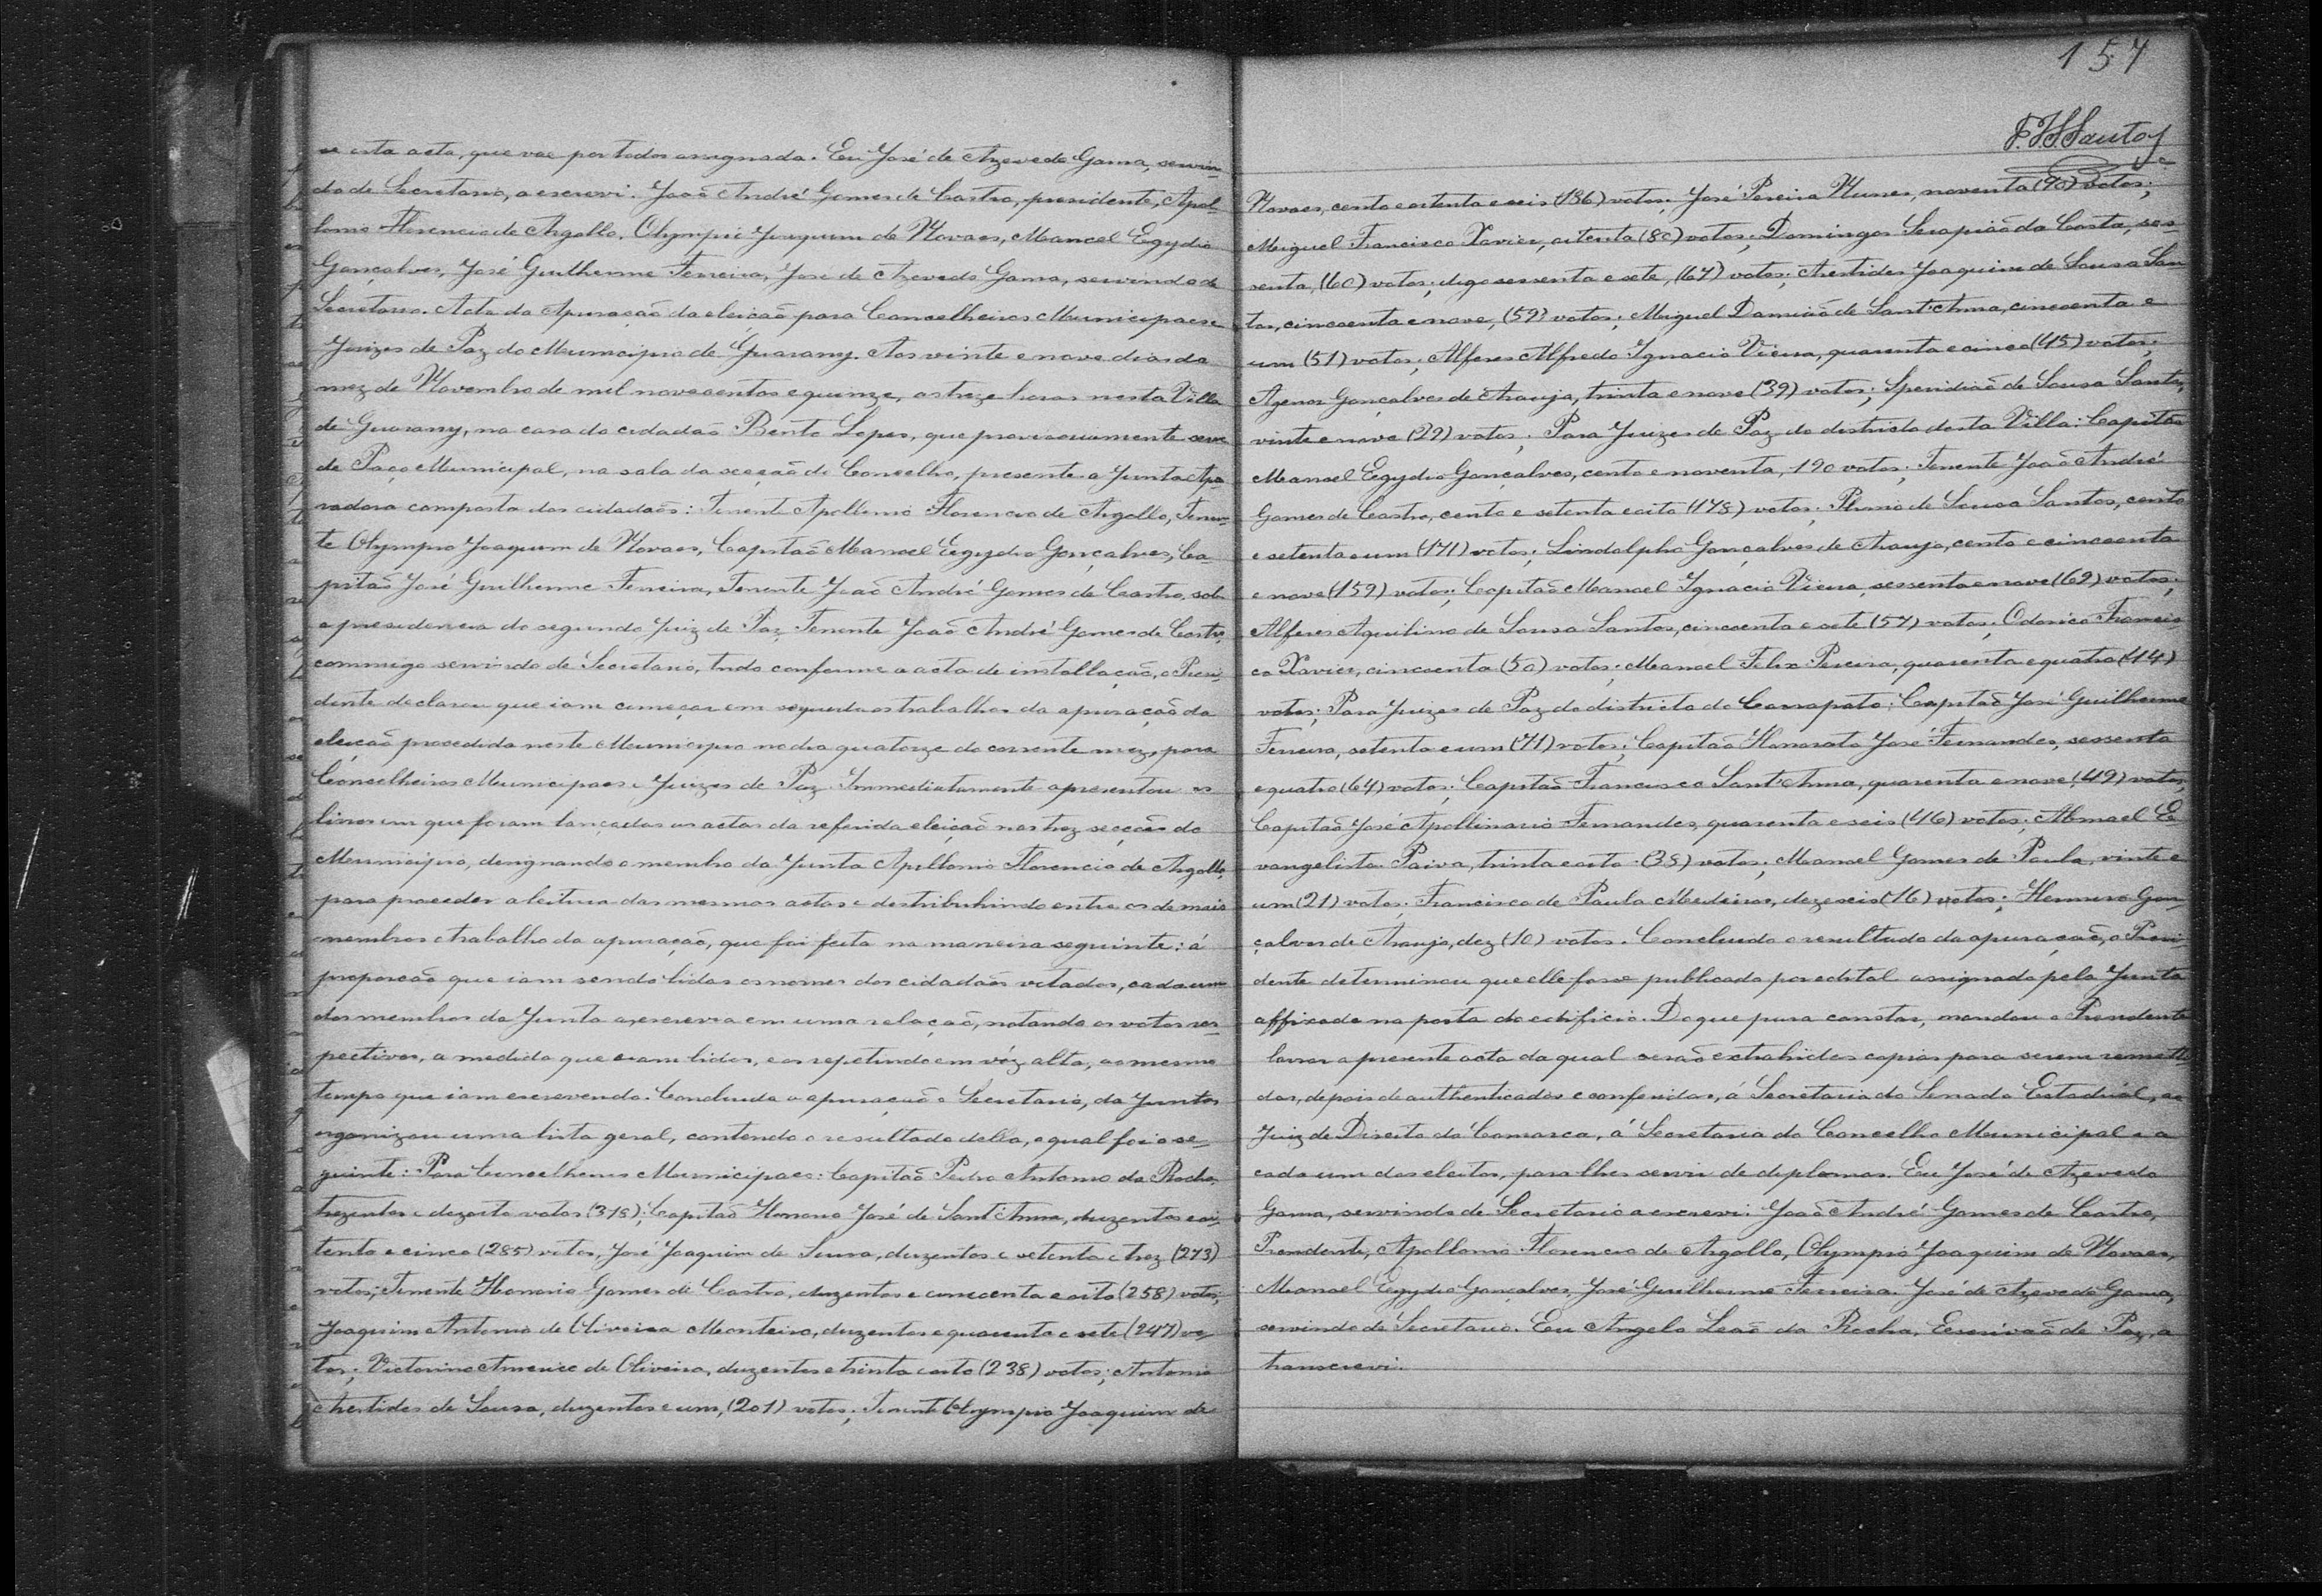 se esta acta, que vae por todos assignada. Eu José de Azevedo Gama, servin-
do de Secretario, a escrevi. João André Gomes de Castro, presidente, Apol-
lonio Florencio de Argollo. Olympio Joaquim de Novaes, Manoel Egydio
Gonçalves, José Guilherme Ferreira, José de Azevedo Gama, servindo de
Secretario. Acta da Apuração da eleição para Conselheiros Municipaes e
Juizes de Paz do Municipio de Guarany. Aos vinte e nove dias do
mez de Novembro de mil novecentos e quinze, as treze horas nesta Villa
de Guarany, na casa do cidadão Bento Lopes, que provisoriamente serve
de Paço Municipal, na sala da secção do Concelho, presente a Junta Apu-
radora composta dos cidadãos: Tenente Apollonio Florencio de Argollo, Tenen-
te Olympio Joaquim de Novaes, Capitão Manoel Egydio Gonçalves, Ca-
pitão José Guilherme Ferreira, Tenente João André Gomes de Castro, sob
a presidencia do segundo Juiz de Paz Tenente João André Gomes de Castro,
commigo servindo de Secretario, tudo conforme a acta de installação, o Presi-
dente declarou que iam começar em seguida os trabalhos da apuração da
eleição procedida neste Municipio no dia quatorze do corrente mez, para
Concelheiros Municipaes e Juizes de Paz. Immediatamente apresentou os
livros em que foram lançadas as actas da referida eleição nas trez secções do
Municipio, designando o membro da Junta Apollonio Florencio de Argollo,
para proceder a leitura das mesmas actas e destribuhindo entre os demais
membros o trabalho da apuração, que foi feita na maneira seguinte: á
proporcão que iam sendo lidos os nomes dos cidadãos votados, cada um
dos membros da Junta a escrevia em uma relação, notando os votos res-
pectivos, a medida que eram lidos, e os repetindo em vóz alta, ao mesmo
tempo que iam escrevendo. Concluida a apuração o Secretario, da Junta
organizou uma lista geral, contendo o resultado della, o qual foi o se-
guinte: Para Concelheiros Municipaes: Capitão Pedro Antonio da Rocha,
trezentos e dezoito votos (318); Capitão Honorio José de Sant'Anna, duzentos e oi-
tenta e cinco (285) votos, José Joaquim de Sousa, duzentos e setenta e trez (273)
votos; Tenente Honorio Gomes de Castro, duzentos e cincoenta e oito (258) votos;
Joaquim Antonio de Oliveira Monteiro, duzentos e quarenta e sete (247) vo-
tos; Victorino Americo de Oliveira, duzentos e trinta e oito (238) votos; Antonio
Arestides de Sousa, duzentos e um, (201) votos; Tenente Olympio Joaquim de
157
F. H. S. Santos
Novaes, cento e oitenta e seis (186) votos; José Pereira Nunes, noventa (90) votos;
Miguel Francisco Xavier, oitenta (80) votos; Domingos Serapião da Costa, ses-
senta, (60) votos; digo sessenta e sete, (67) votos; Arestides Joaquim de Sousa San-
tos, cincoenta e nove, (59) votos; Miguel Damião de Sant'Anna, cincoenta e
um (51) votos; Alferes Alfredo Ignacio Vieira, quarenta e cinco (45) votos;
Agenor Gonçalves de Araujo, trinta e nove (39) votos; Speridião de Sousa Santos,
vinte e nove (29) votos. Para Juizes de Paz do districto desta Villa: Capitão
Manoel Egydio Gonçalves, cento e noventa, 190 votos; Tenente João André
Gomes de Castro, cento e setenta e oito (178) votos; Plinio de Sousa Santos, cento
e setenta e um (171) votos; Lindolpho Gonçalves de Araujo, cento e cincoenta
e nove (159) votos; Capitão Manoel Ignacio Vieira, sessenta e nove (69) votos;
Alferes Aquilino de Sousa Santos, cincoenta e sete (57) votos; Odorico Francis-
co Xavier, cincoenta (50) votos; Manoel Felix Pereira, quarenta e quatro (44)
votos; Para Juizes de Paz do districto do Carrapato: Capitão José Guilherme
Ferreira, setenta e um (71) votos; Capitão Honorato José Fernandes, sessenta
e quatro (64) votos; Capitão Francisco Sant'Anna, quarenta e nove (49) votos;
Capitão José Apollinario Fernandes, quarenta e seis (46) votos; Manoel E-
vangelista Paiva, trinta e oito (38) votos; Manoel Gomes de Paula, vinte e
um (21) votos; Francisco de Paula Medeiros, dezeseis (16) votos; Gon-
çalves de Araujo, dez (10) votos. Concluido o resultado da apuração, o Presi-
dente determinou que elle fosse publicado por edital assignado pela Junta
affixado na porta do edificio. Do que para constar, mandou o Presidente
lavrar a presente acta da qual serão extrahidas copias para serem remetti-
das, depois de authenticadas e conferidas, á Secretaria do Senado Estadual, ao
Juiz de Direito da Comarca, á Secretaria do Concelho Municipal e a
cada um dos eleitos, para lhes servir de diplomas. Eu José de Azevedo
Gama, servindo de Secretario a escrevi. João André Gomes de Castro,
Presidente, Apollonio Florencio de Argollo, Olympio Joaquim de Novaes,
Manoel Egydio Gonçalves, José Guilherme Ferreira. José de Azevedo Gama,
servindo de Secretario. Eu Angelo Leão da Rocha, Escrivão de Paz, a
transcrevi.